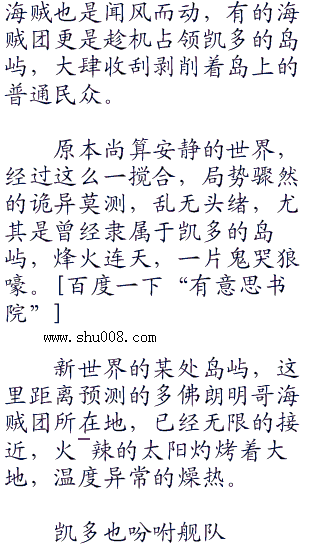 海贼也是闻风而动，有的海
贼团更是趁机占领凯多的岛
屿，大肆收刮剥削着岛上的
普通民众。
原本尚算安静的世界，
经过这么一搅合，局势骤然
的诡异莫测，乱无头绪，尤
其是曾经隶属于凯多的岛
屿，烽火连天，一片鬼哭狼
嚎。[百度一下“有意思书
院”]
www.shu008.com
新世界的某处岛屿，这
里距离预测的多佛朗明哥海
贼团所在地，已经无限的接
近，火¯辣的太阳灼烤着大
地，温度异常的燥热。
凯多也吩咐舰队